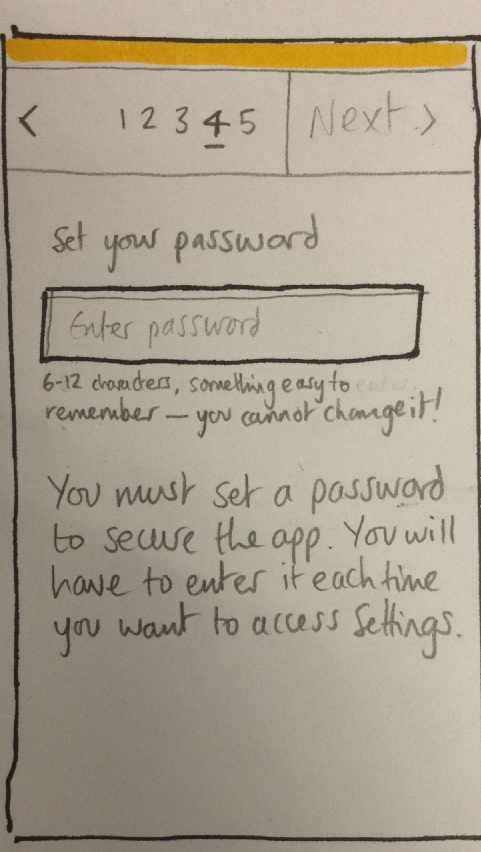 < 1 2 3 4 5 Next >
Set your password
Enter password
6-12 characters, something easy to
remember — you cannot change it!
You must set a password
to secure the app. You will
have to enter it each time
you want to access Settings.